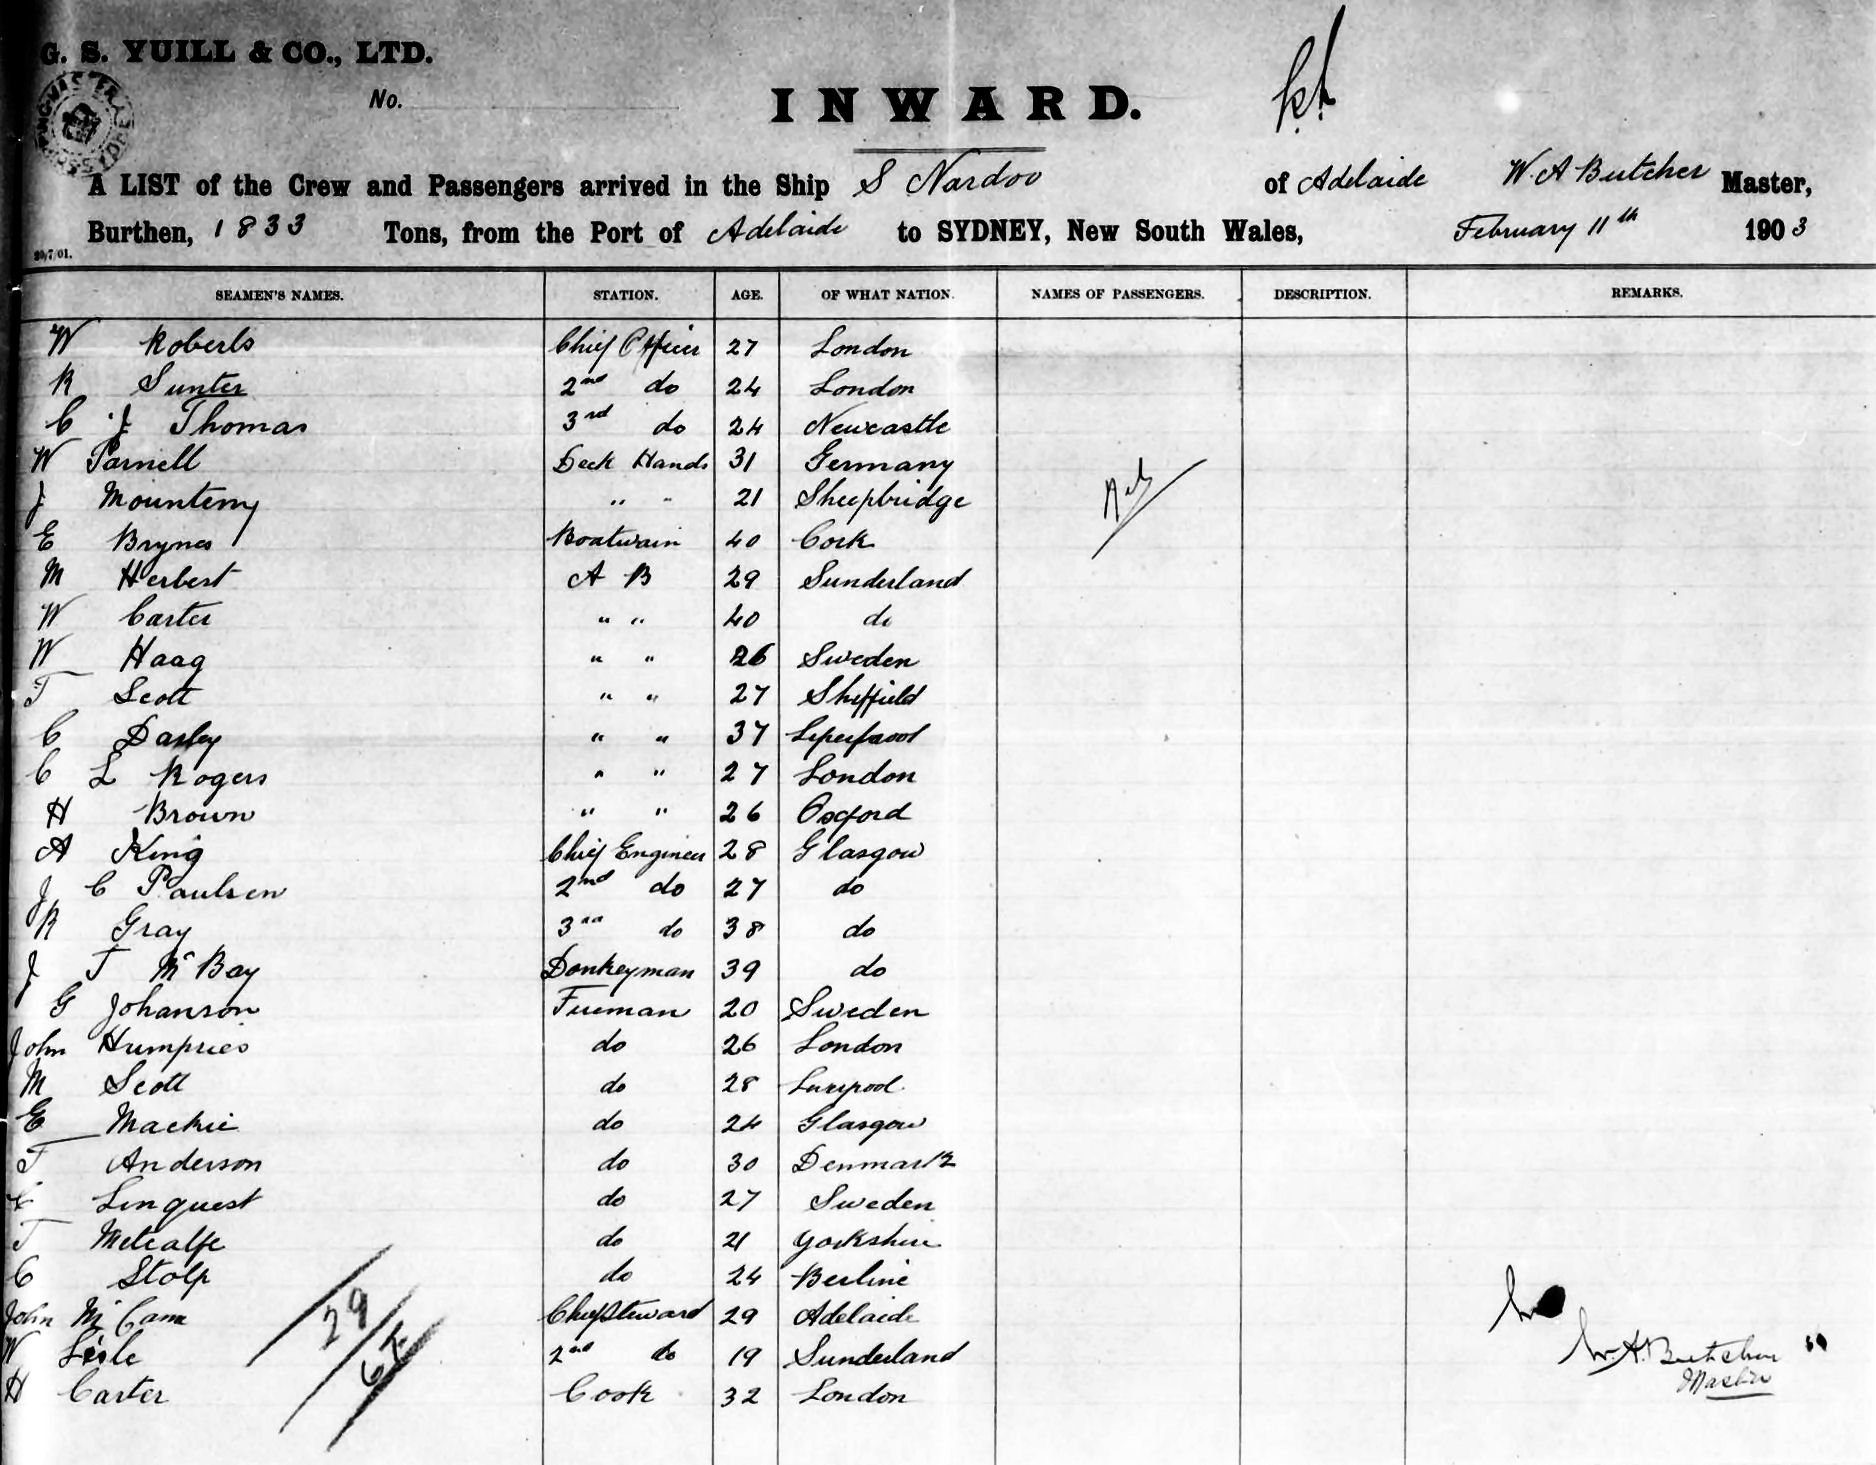 G. S. YUILL & CO., LTD.
No.
INWARD.
A LIST of the Crew and Passengers arrived in the Ship S Nardoo of Adelaide W. A Butcher Master,
Burthen, 1833 Tons, from the Port of Adelaide to SYDNEY, New South Wales, February 11th 1903
20/7/01.
SEAMEN'S NAMES. STATION. AGE. OF WHAT NATION. NAMES OF PASSENGERS. DESCRIPTION. REMARKS.
W Roberts Chief Officer 27 London
R Sunter 2nd do 24 London
C J Thomas 3rd do 24 Newcastle
W Parnell Deck Hands 31 Germany
J Mounteny " " 21 Sheepbridge
E Brynes Boatwain 40 Cork
M Herbert A B 29 Sunderland
W Carter " " 40 do
W Haag " " 26 Sweden
T Scott " " 27 Sheffield
C Darley " " 37
C L Rogers " " 27 London
H Brown " " 26 Oxford
A King Chief Engineer 28 Glasgow
J C Paulsen 2nd do 27 do
R Gray 3rd do 38 do
J T McBay Donkeyman 39 do
G Johanson Fireman 20 Sweden
John Humpries do 26 London
M Scott do 28 Liverpool
E Mackie do 24 Glasgow
T Anderson do 30 Denmark
Linquest do 27 Sweden
T Metcalfe do 21 Yorkshire
C Stolp do 24 Berline
John McCann Chief Steward 29 Adelaide
W Lisle 2nd do 19 Sunderland
H Carter Cook 32 London
29
W. A. Butcher
Master